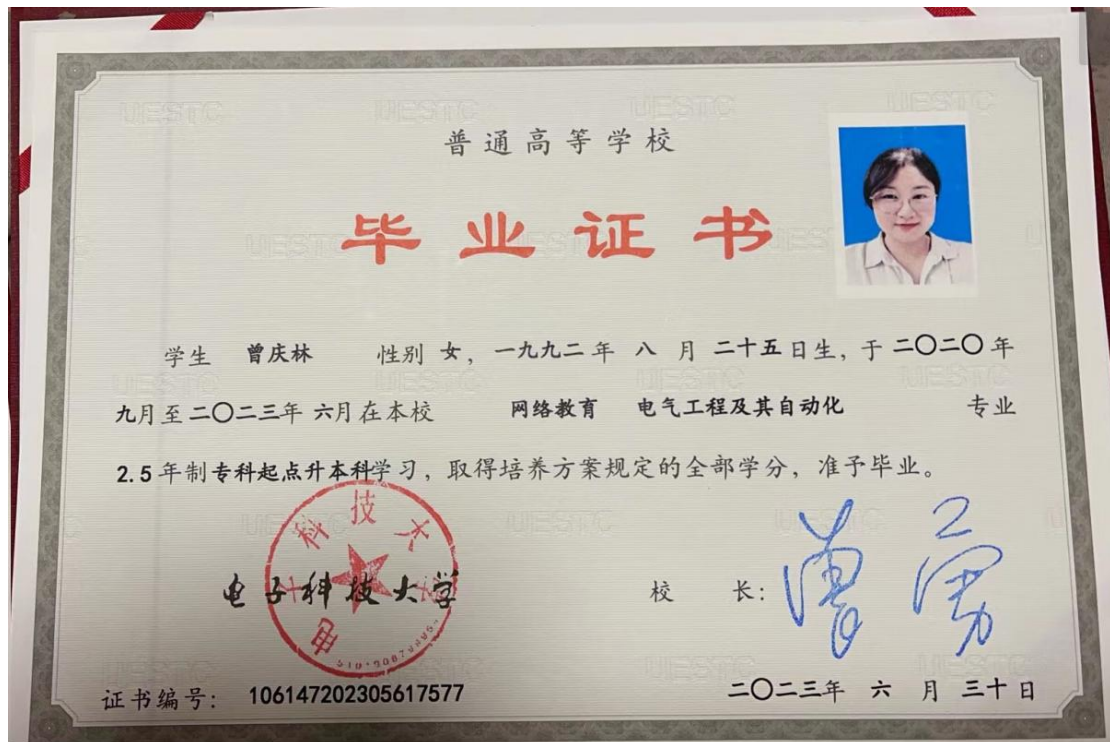 普通高等学校
毕业证书
学生 曾庆林 性别 女，一九九二年 八 月 二十五日生，于二〇二〇年
九月至二〇二三年 六月在本校 网络教育 电气工程及其自动化 专业
2.5年制专科起点升本科学习，取得培养方案规定的全部学分，准予毕业。
电子科技大学
电子科技大学
校 长：曾勇
证书编号：106147202305617577
二〇二三年 六 月 三十日
UESTC